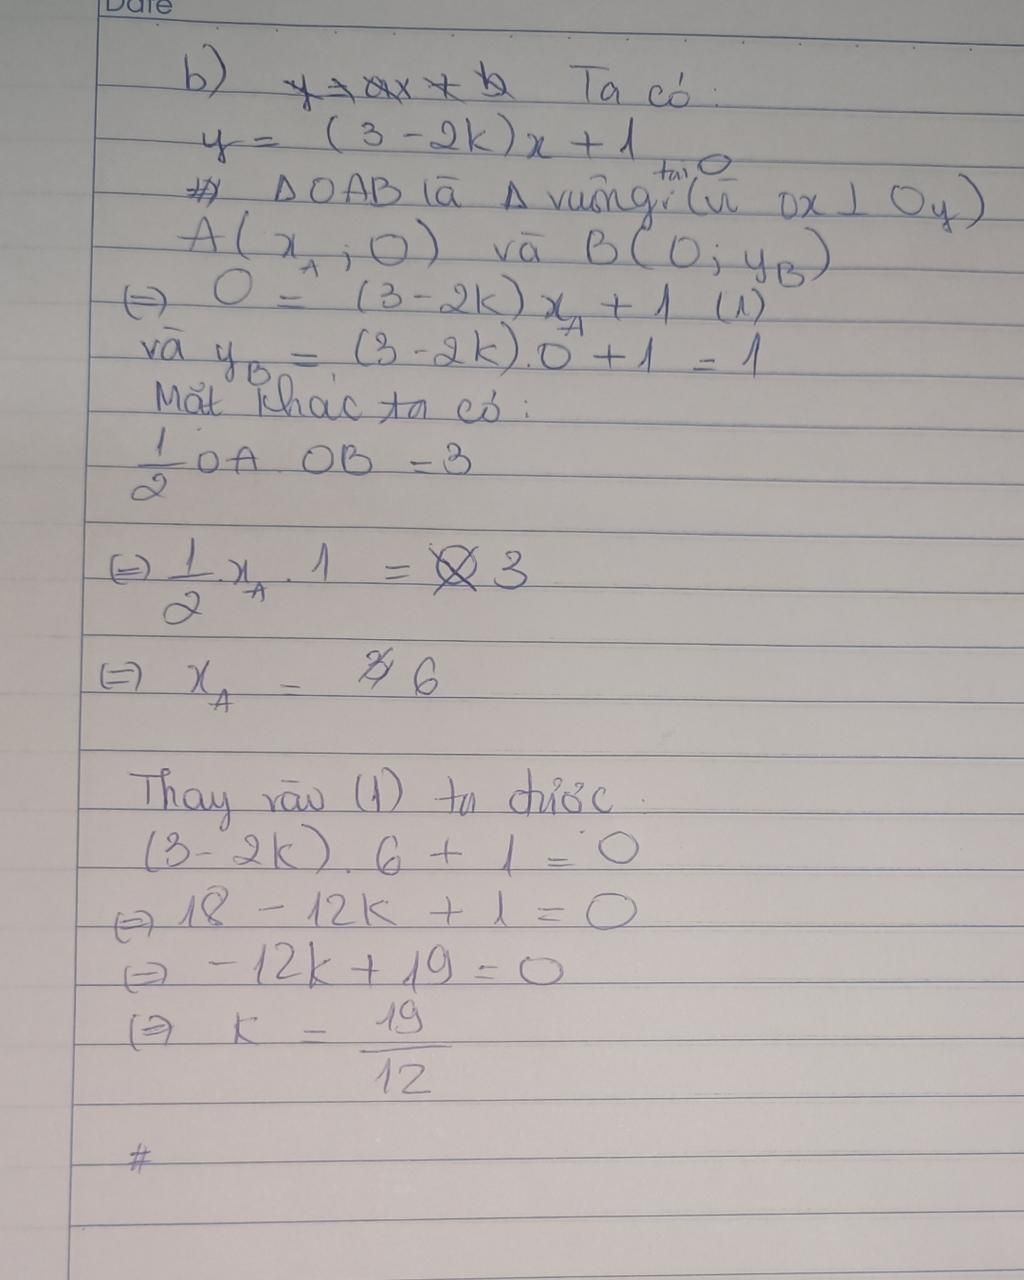 Date
b) y = ax + b Ta có:
y = (3 - 2k)x + 1
=> ΔOAB là Δ vuông tại O (vì Ox ⊥ Oy)
A(x_A ; 0) và B(0; y_B)
<=> 0 = (3 - 2k) x_A + 1 (1)
và y_B = (3 - 2k).0 + 1 = 1
Mặt khác ta có:
1/2 OA OB = 3
<=> 1/2 . x_A . 1 = 3
<=> x_A = 6
Thay vào (1) ta được
(3 - 2k). 6 + 1 = 0
<=> 18 - 12k + 1 = 0
<=> -12k + 19 = 0
<=> k = 19/12
#